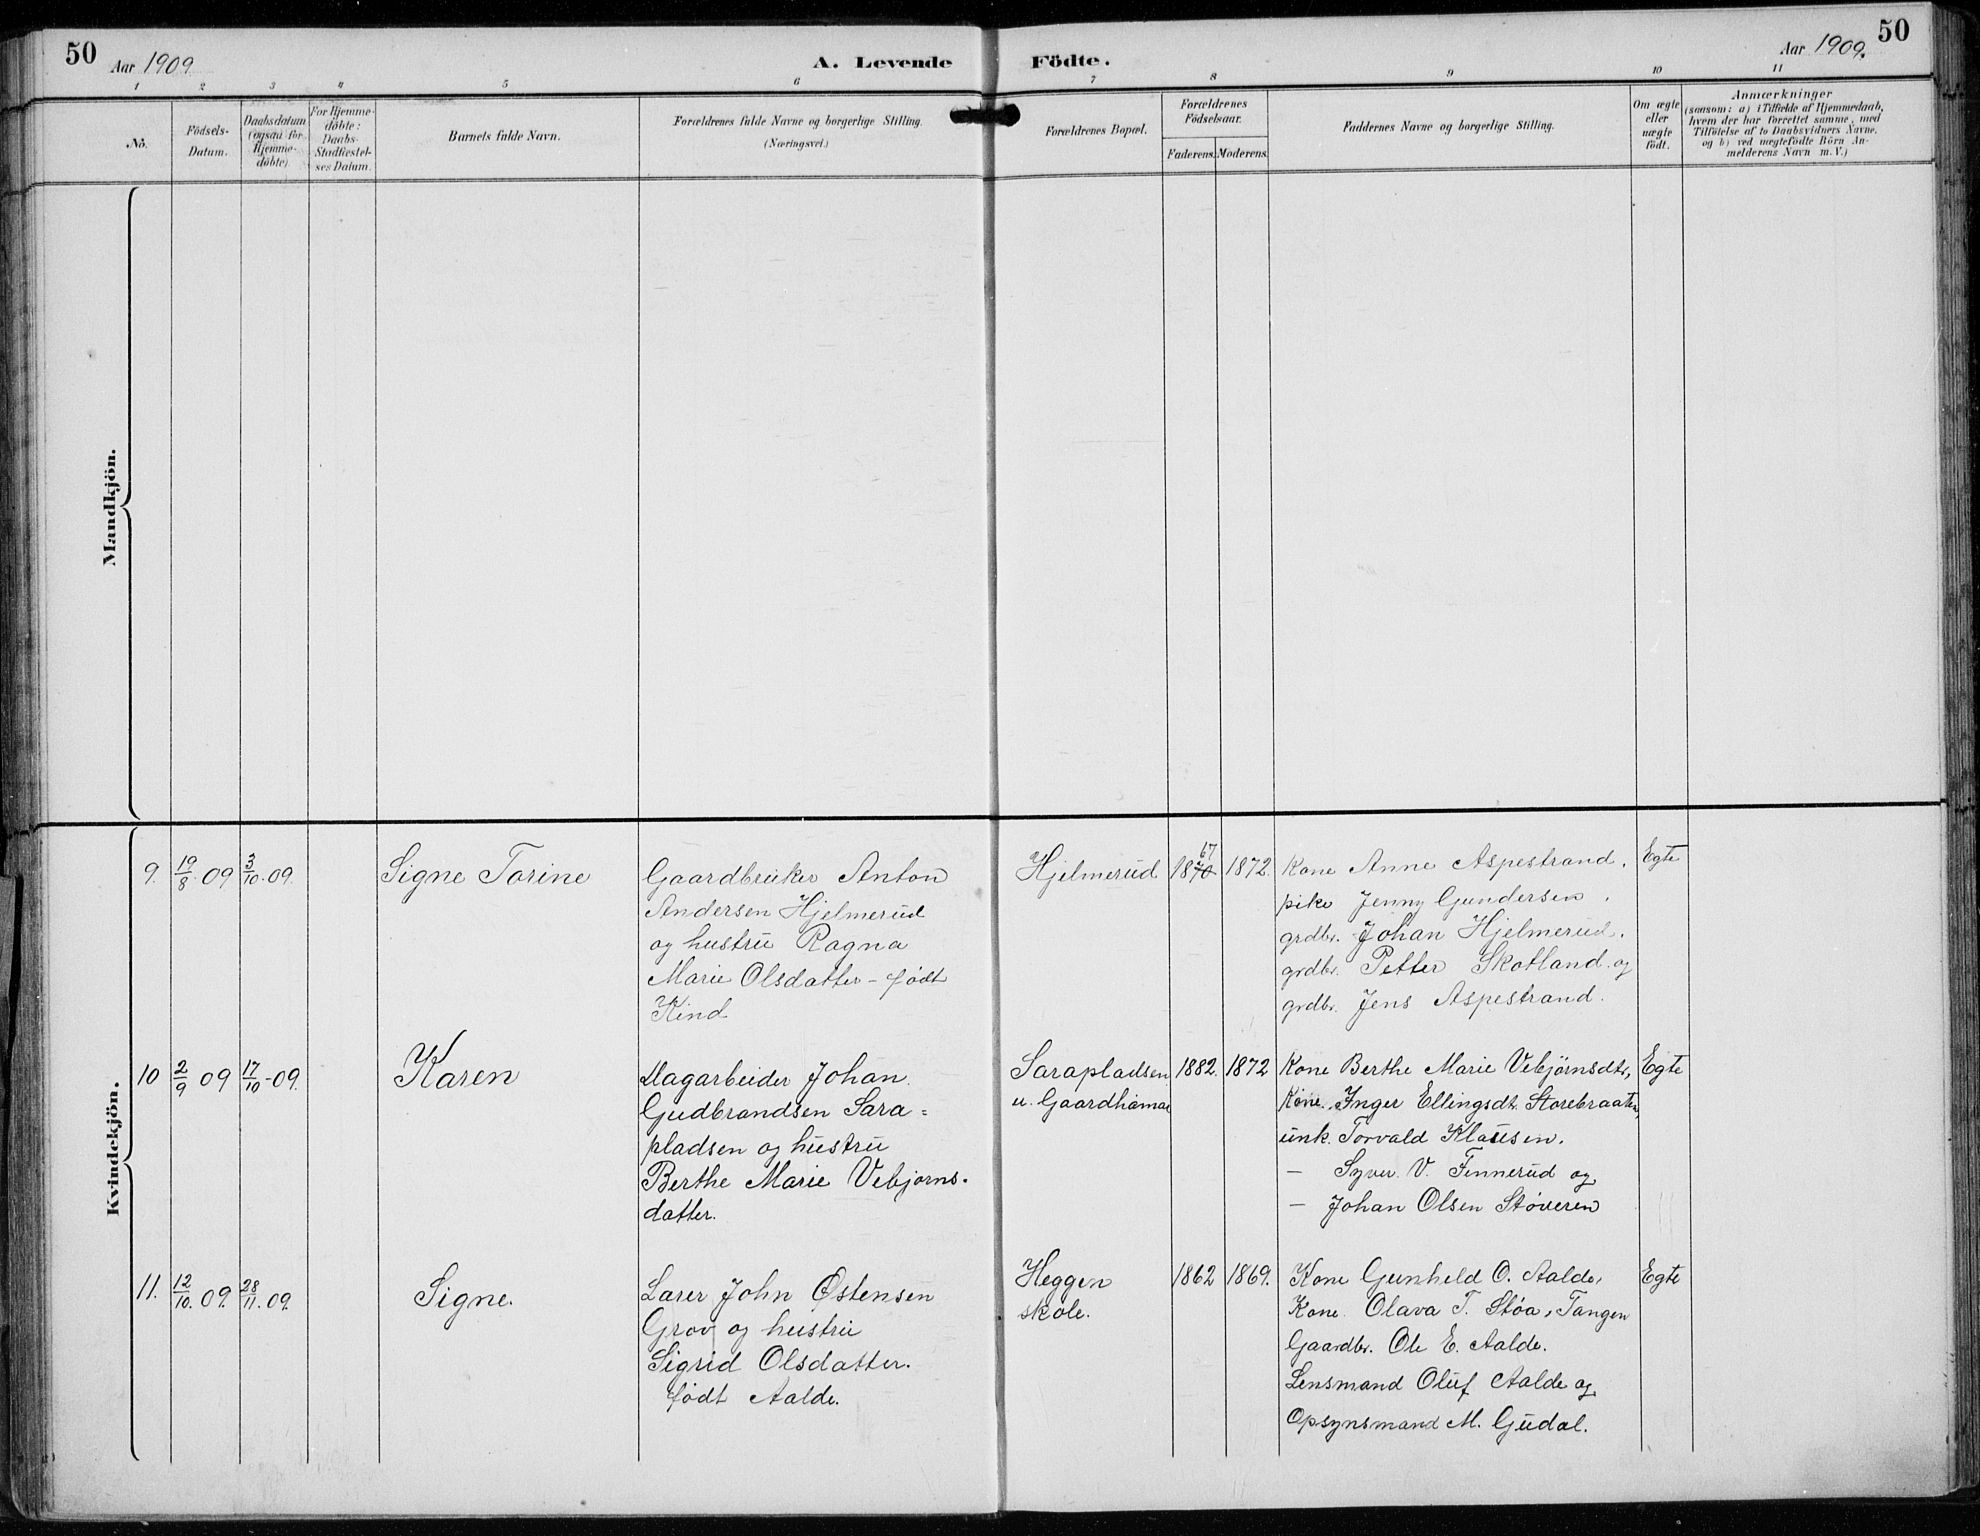 50
Aar 1909
A. Levende Födte.
Aar 1909.
50
1 2 3 4 5 6 7 8 9 10 11
No.
Födsels-
Datum.
Daabsdatum
(ogsaa for
Hjemme-
döbte)
For Hjemme-
döbte:
Daabs-
Stadfæstel-
ses Datum.
Barnets fulde Navn.
Forældrenes fulde Navne og borgerlige Stilling.
(Næringsvei.)
Forældrenes Bopæl.
Forældrenes
Födselsaar.
Faderens. Moderens.
Faddernes Navne og borgerlige Stilling.
Om ægte
eller
uægte
födt.
Anmærkninger
(saasom: a) i Tilfælde af Hjemmedaab,
hvem der har forrettet samme, med
Tilföielse af to Daabsvidners Navne,
og b) ved uægtefödte Börn An-
melderens Navn m. V.)
Mandkjön.
Kvindekjön.
9. 19/8 09 3/10 09.
Signe Torine
Gaardbruker Anton
Andersen Hjelmerud
og hustru Ragna
Marie Olsdatter - født
Kind
Hjelmerud
67
1870 1872.
Kone Anne Aspestrand.
pike Jenny Gundersen.
grdbr. Johan Hjelmerud.
grdbr. Petter Skotland og
grdbr. Jens Aspestrand.
Egte
10 2/9 09 17/10-09.
Karen
Dagarbeider Johan
Gudbrandsen Sara=
pladsen og hustru
Berthe Marie Vebjørns-
datter.
Sarapladsen
u. Gaardhamar
1882. 1872
Kone Berthe Marie Vebjørnsdtr,
Kone. Inger Ellingsdt. Storebraaten,
unk. Torvald Klausen.
— Syver V. Finnerud og
— Johan Olsen Støveren
Egte
11. 12/10. 09. 28/11. 09.
Signe.
Lærer John Østensen
Grov og hustru
Sigrid Olsdatter.
født Aalde.
Heggen
skole.
1862 1869.
Kone Gunhild O. Aalde,
Kone Olava T. Støa, Tangen
Gaardbr. Ole E. Aalde.
Lensmand Oluf Aalde og
Opsynsmand M. Gudal.
Egte